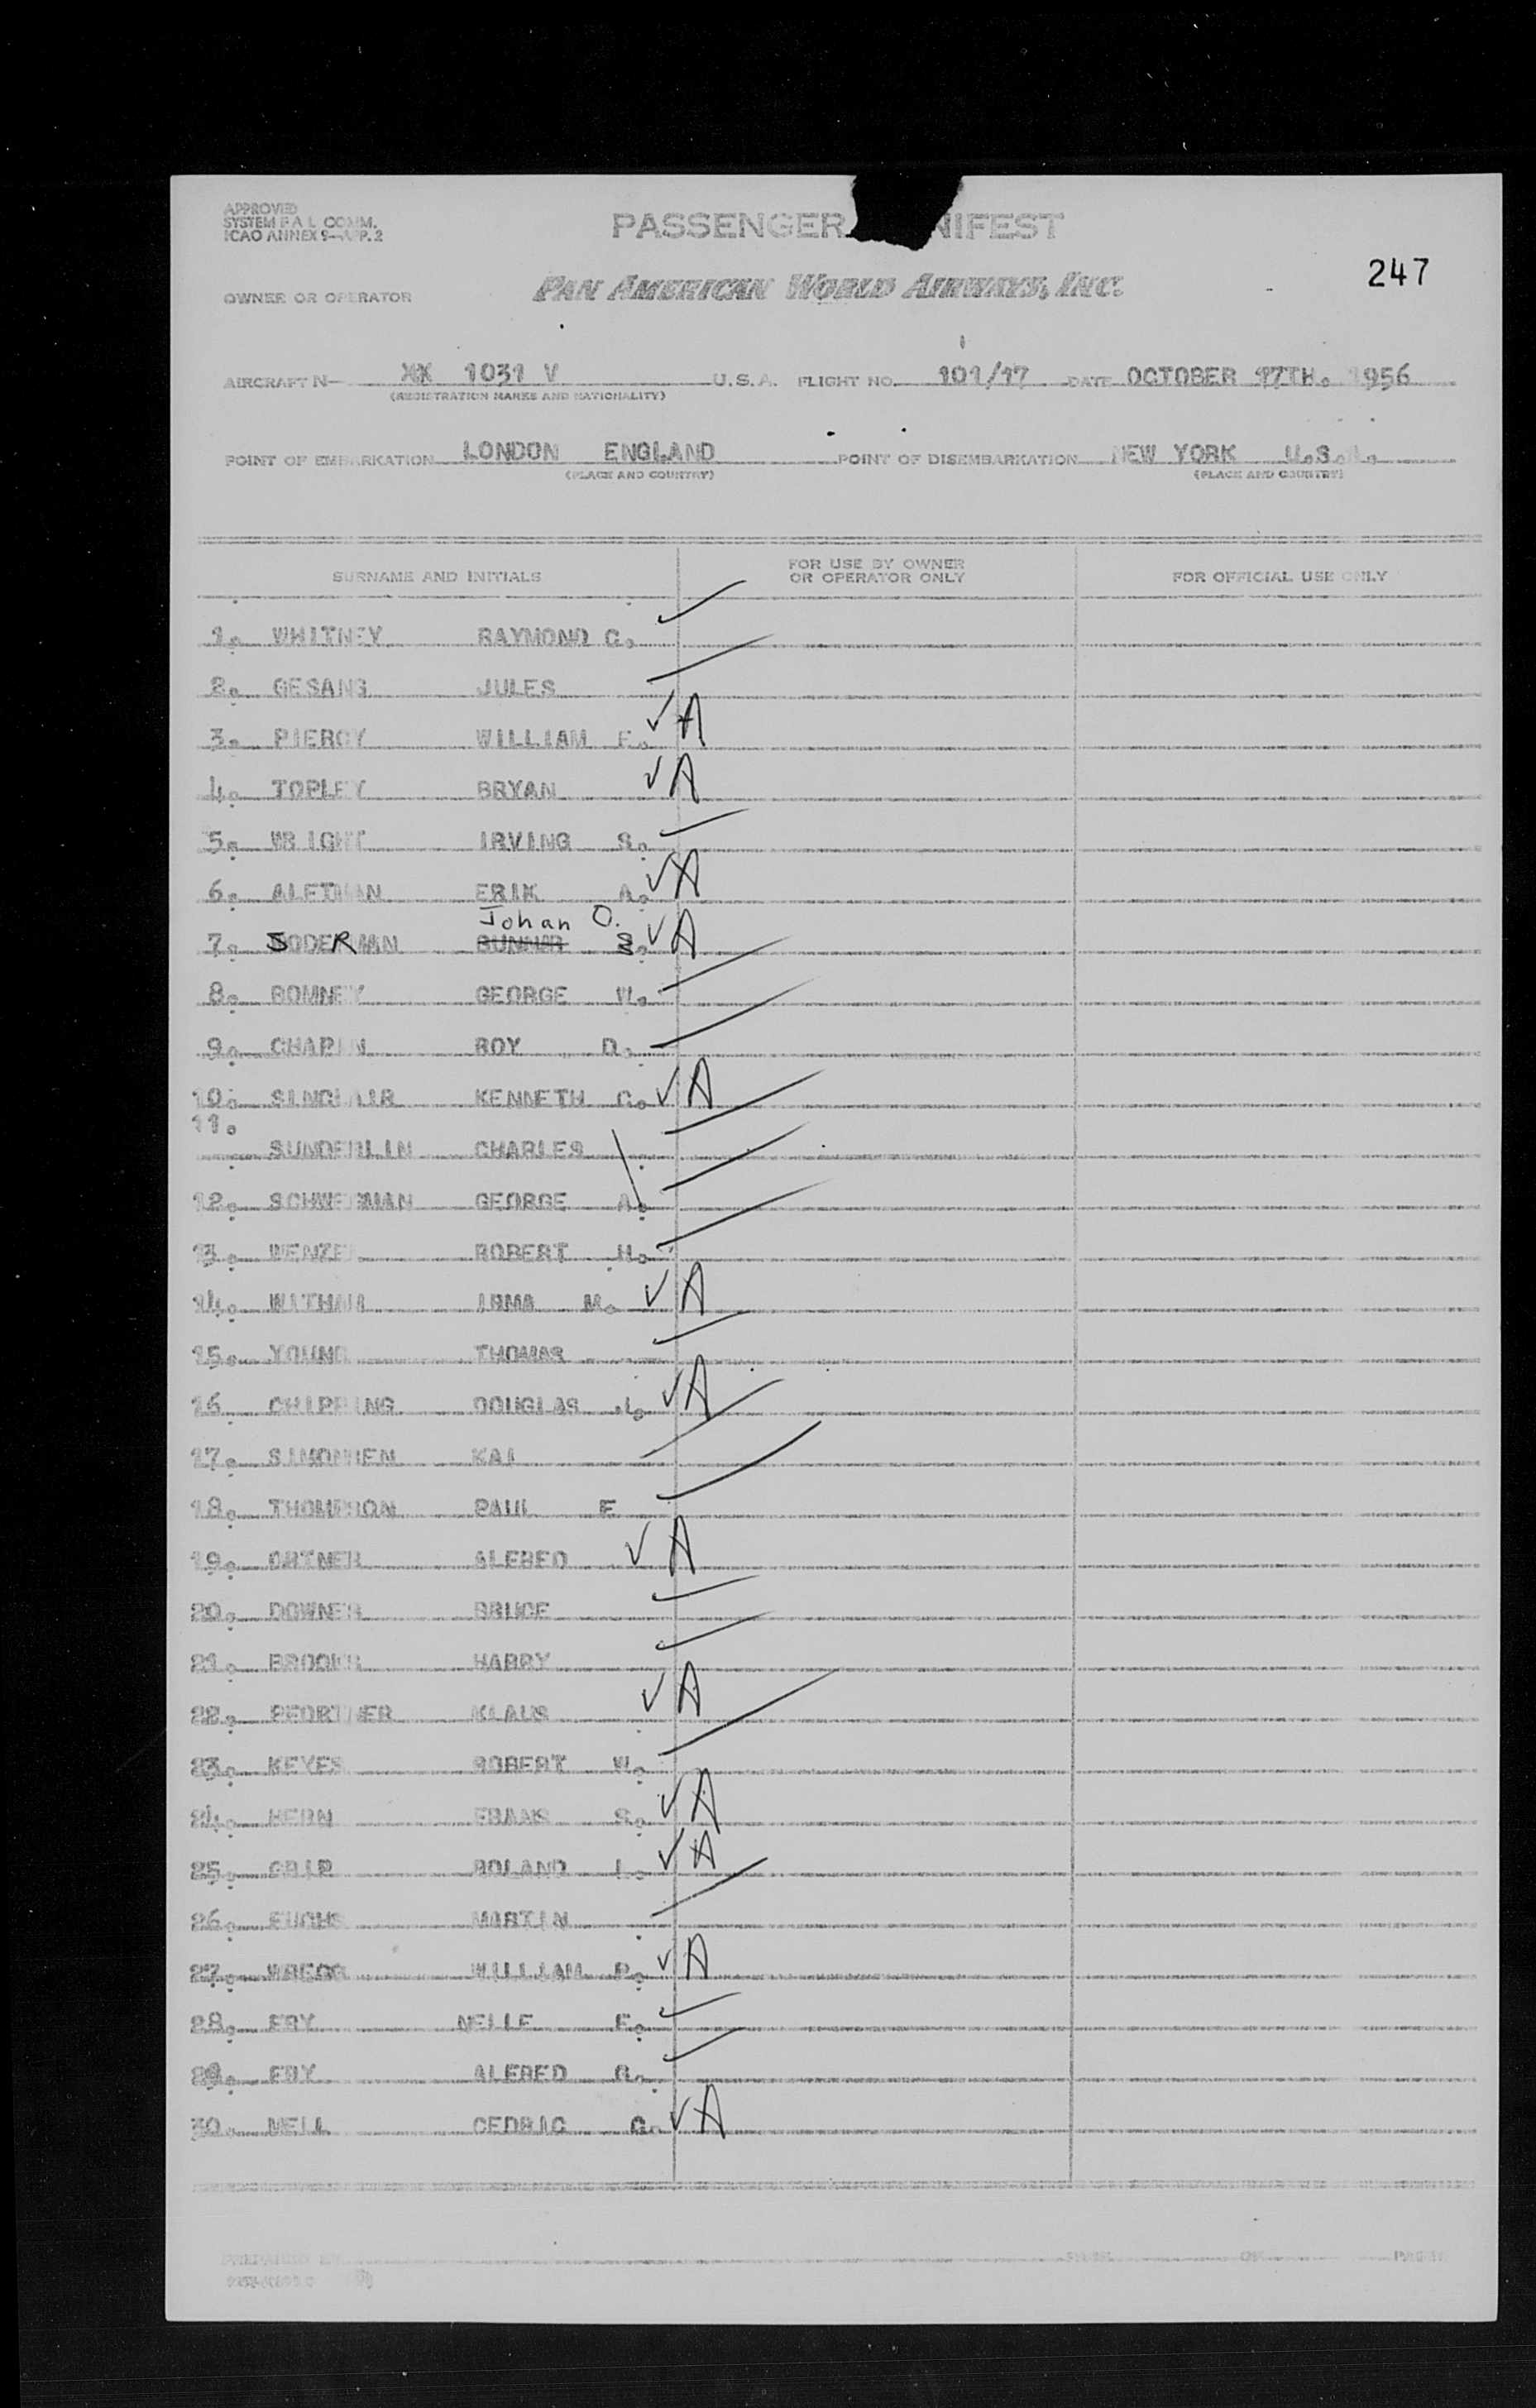 APPROVED
SYSTEM F A L COMM.
ICAO ANNEX 9—APP. 2
PASSENGER NIFEST
247
OWNER OR OPERATOR PAN AMERICAN WORLD AIRWAYS, INC.
AIRCRAFT N— XX 1031 V U.S.A. FLIGHT NO. 101/17 DATE OCTOBER 17TH. 1956
(REGISTRATION MARKS AND NATIONALITY)
POINT OF EMBARKATION LONDON ENGLAND POINT OF DISEMBARKATION NEW YORK U.S.A.
(PLACE AND COUNTRY) (PLACE AND COUNTRY)
SURNAME AND INITIALS FOR USE BY OWNER OR OPERATOR ONLY FOR OFFICIAL USE ONLY
1. WHITNEY RAYMOND C. ✓
2. GESANG JULES
3. PIERCY WILLIAM F. ✓ A
4. TOPLEY BRYAN ✓ A
5. WRIGHT IRVING S. ✓
6. ALETMAN ERIK A. ✓ A
Johan O.
7. SODERMAN GUNNAR S. ✓ A
8. ROMNEY GEORGE W.
9. CHAPIN ROY D.
10. SINCLAIR KENNETH C. ✓ A
11.
SUNDERLIN CHARLES
12. SCHWEGMAN GEORGE A.
13. WENZEL ROBERT H.
14. WITHAM IRMA M. ✓ A
15. YOUNG THOMAS ✓
16. CHIPPING DOUGLAS J. ✓ A
17. SIMONSEN KAI
18. THOMPSON PAUL F
19. ORTNER ALFRED ✓ A
20. DOWNER BRUCE ✓
21. BROOKS HARRY ✓
22. PFORTNER KLAUS ✓ A
23. KEYES ROBERT W.
24. HERN FRANS S. ✓ A
25. GRIP ROLAND L. ✓ A
26. FUCHS MARTIN
27. WREGG WILLIAM P. ✓ A
28. FRY NELLE F. ✓
29. FRY ALFRED R. ✓
30. NEILL CEDRIC G. ✓ A